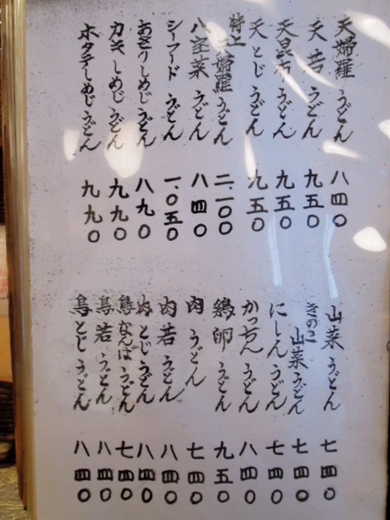 天婦羅うどん 八四〇
天若うどん 九五〇
天昆布うどん 九五〇
天とじうどん 九五〇
特上天婦羅うどん 二、一〇〇
八宝菜うどん 八四〇
シーフードうどん 一、〇五〇
あさりしめじうどん 八九〇
カキしめじうどん 九九〇
ホタテしめじうどん 九九〇
山菜うどん 七四〇
きのこ山菜うどん 七四〇
にしんうどん 七四〇
かっちんうどん 八四〇
鶏卵うどん 九五〇
肉うどん 七四〇
肉若うどん 八四〇
肉とじうどん 八四〇
鳥なんばうどん 七四〇
鳥若うどん 八四〇
鳥とじうどん 八四〇